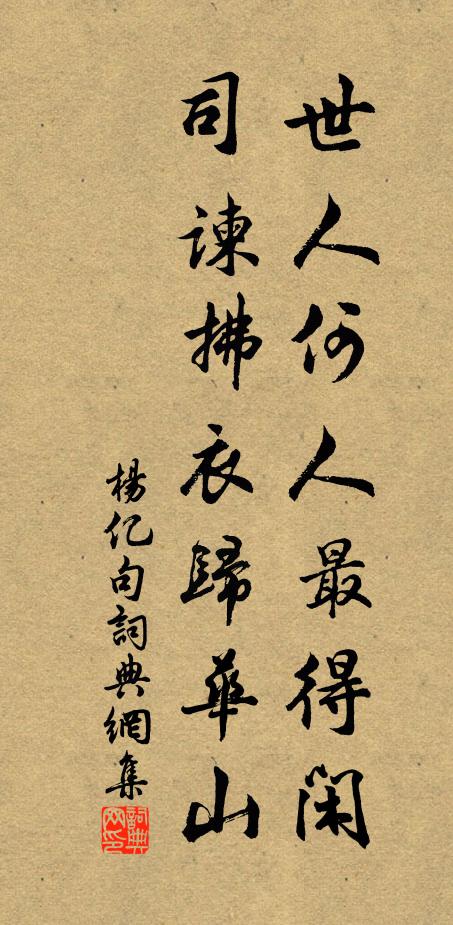 世人何人最得閑
司諫拂衣歸華山
楊亿句詞典網集
詞典网印